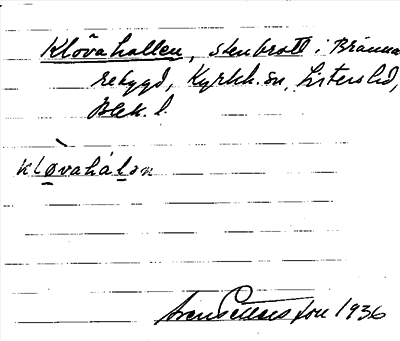 Klövahallen, stenbrott i Bränna-
rebygd, Kyrkh. sn, Listers hd,
Blek. l.
kløvahálən
Sven Pettersson 1936